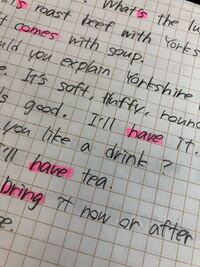 's roast beef with Yorks
What's the lu
t comes with soup.
uld you explain Yorkshire
e. It's soft, fluffy, round
s good. I'll have it.
you like a drink?
'll have tea.
bring it now or after
e.